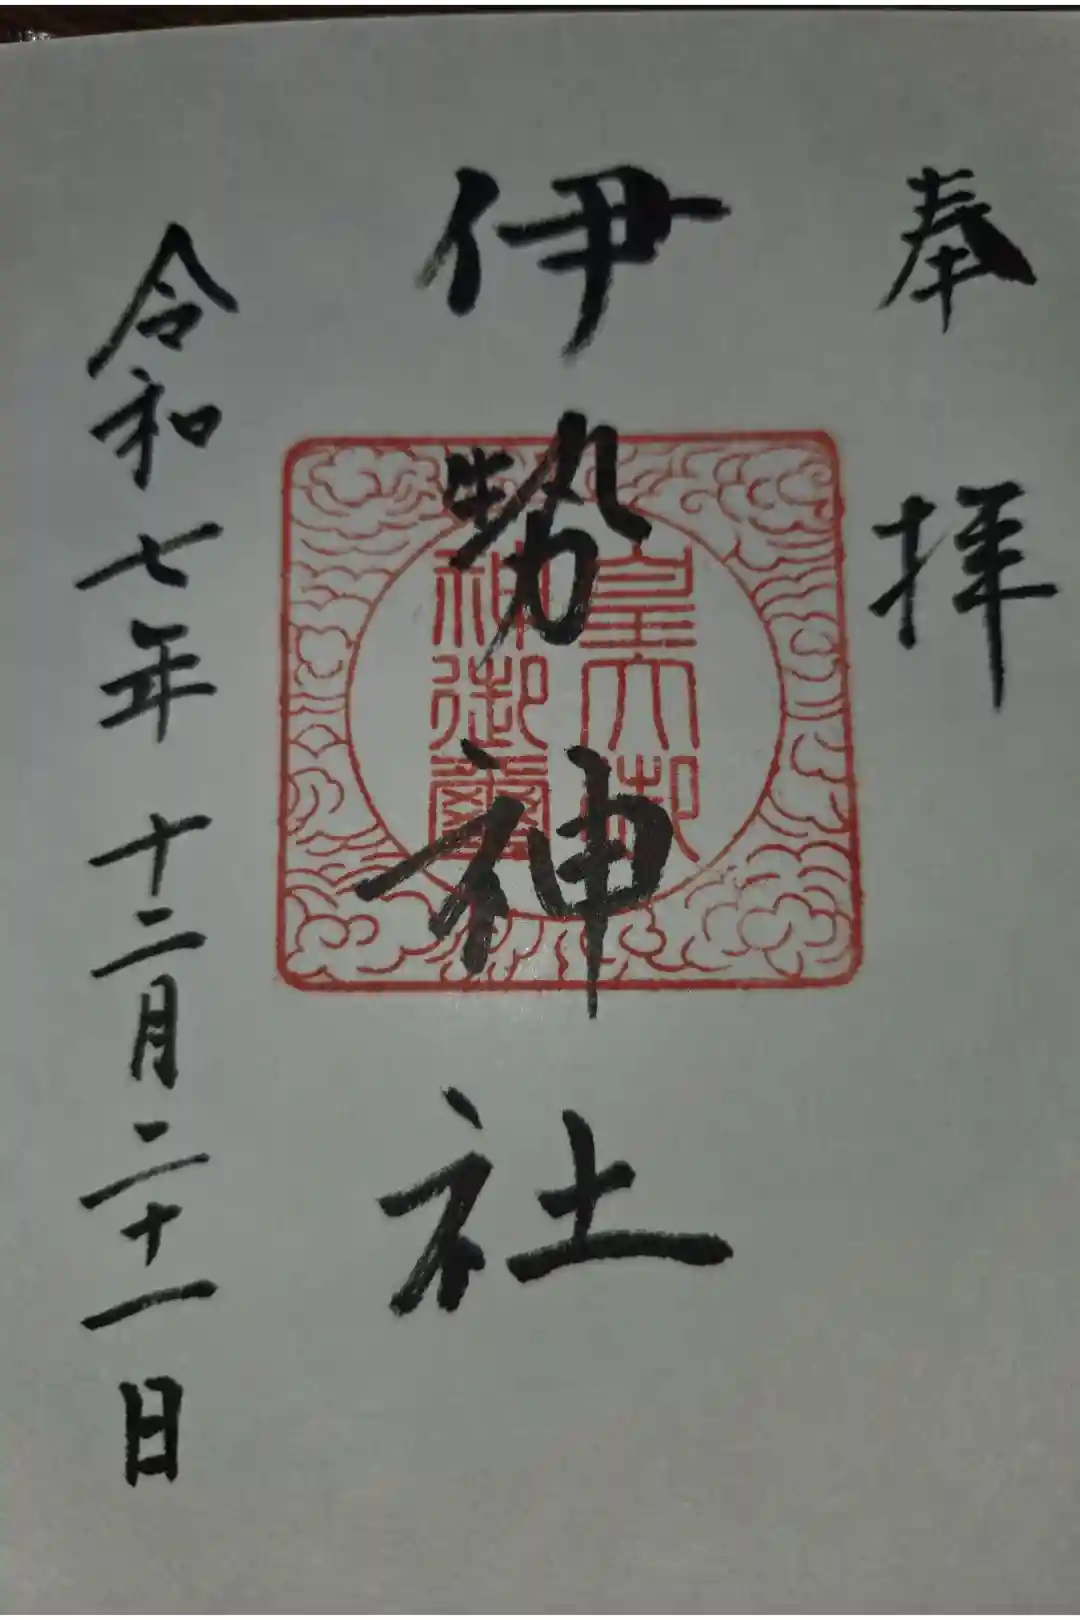 奉拝
伊勢神社
皇大御
神御璽
令和七年十二月二十一日